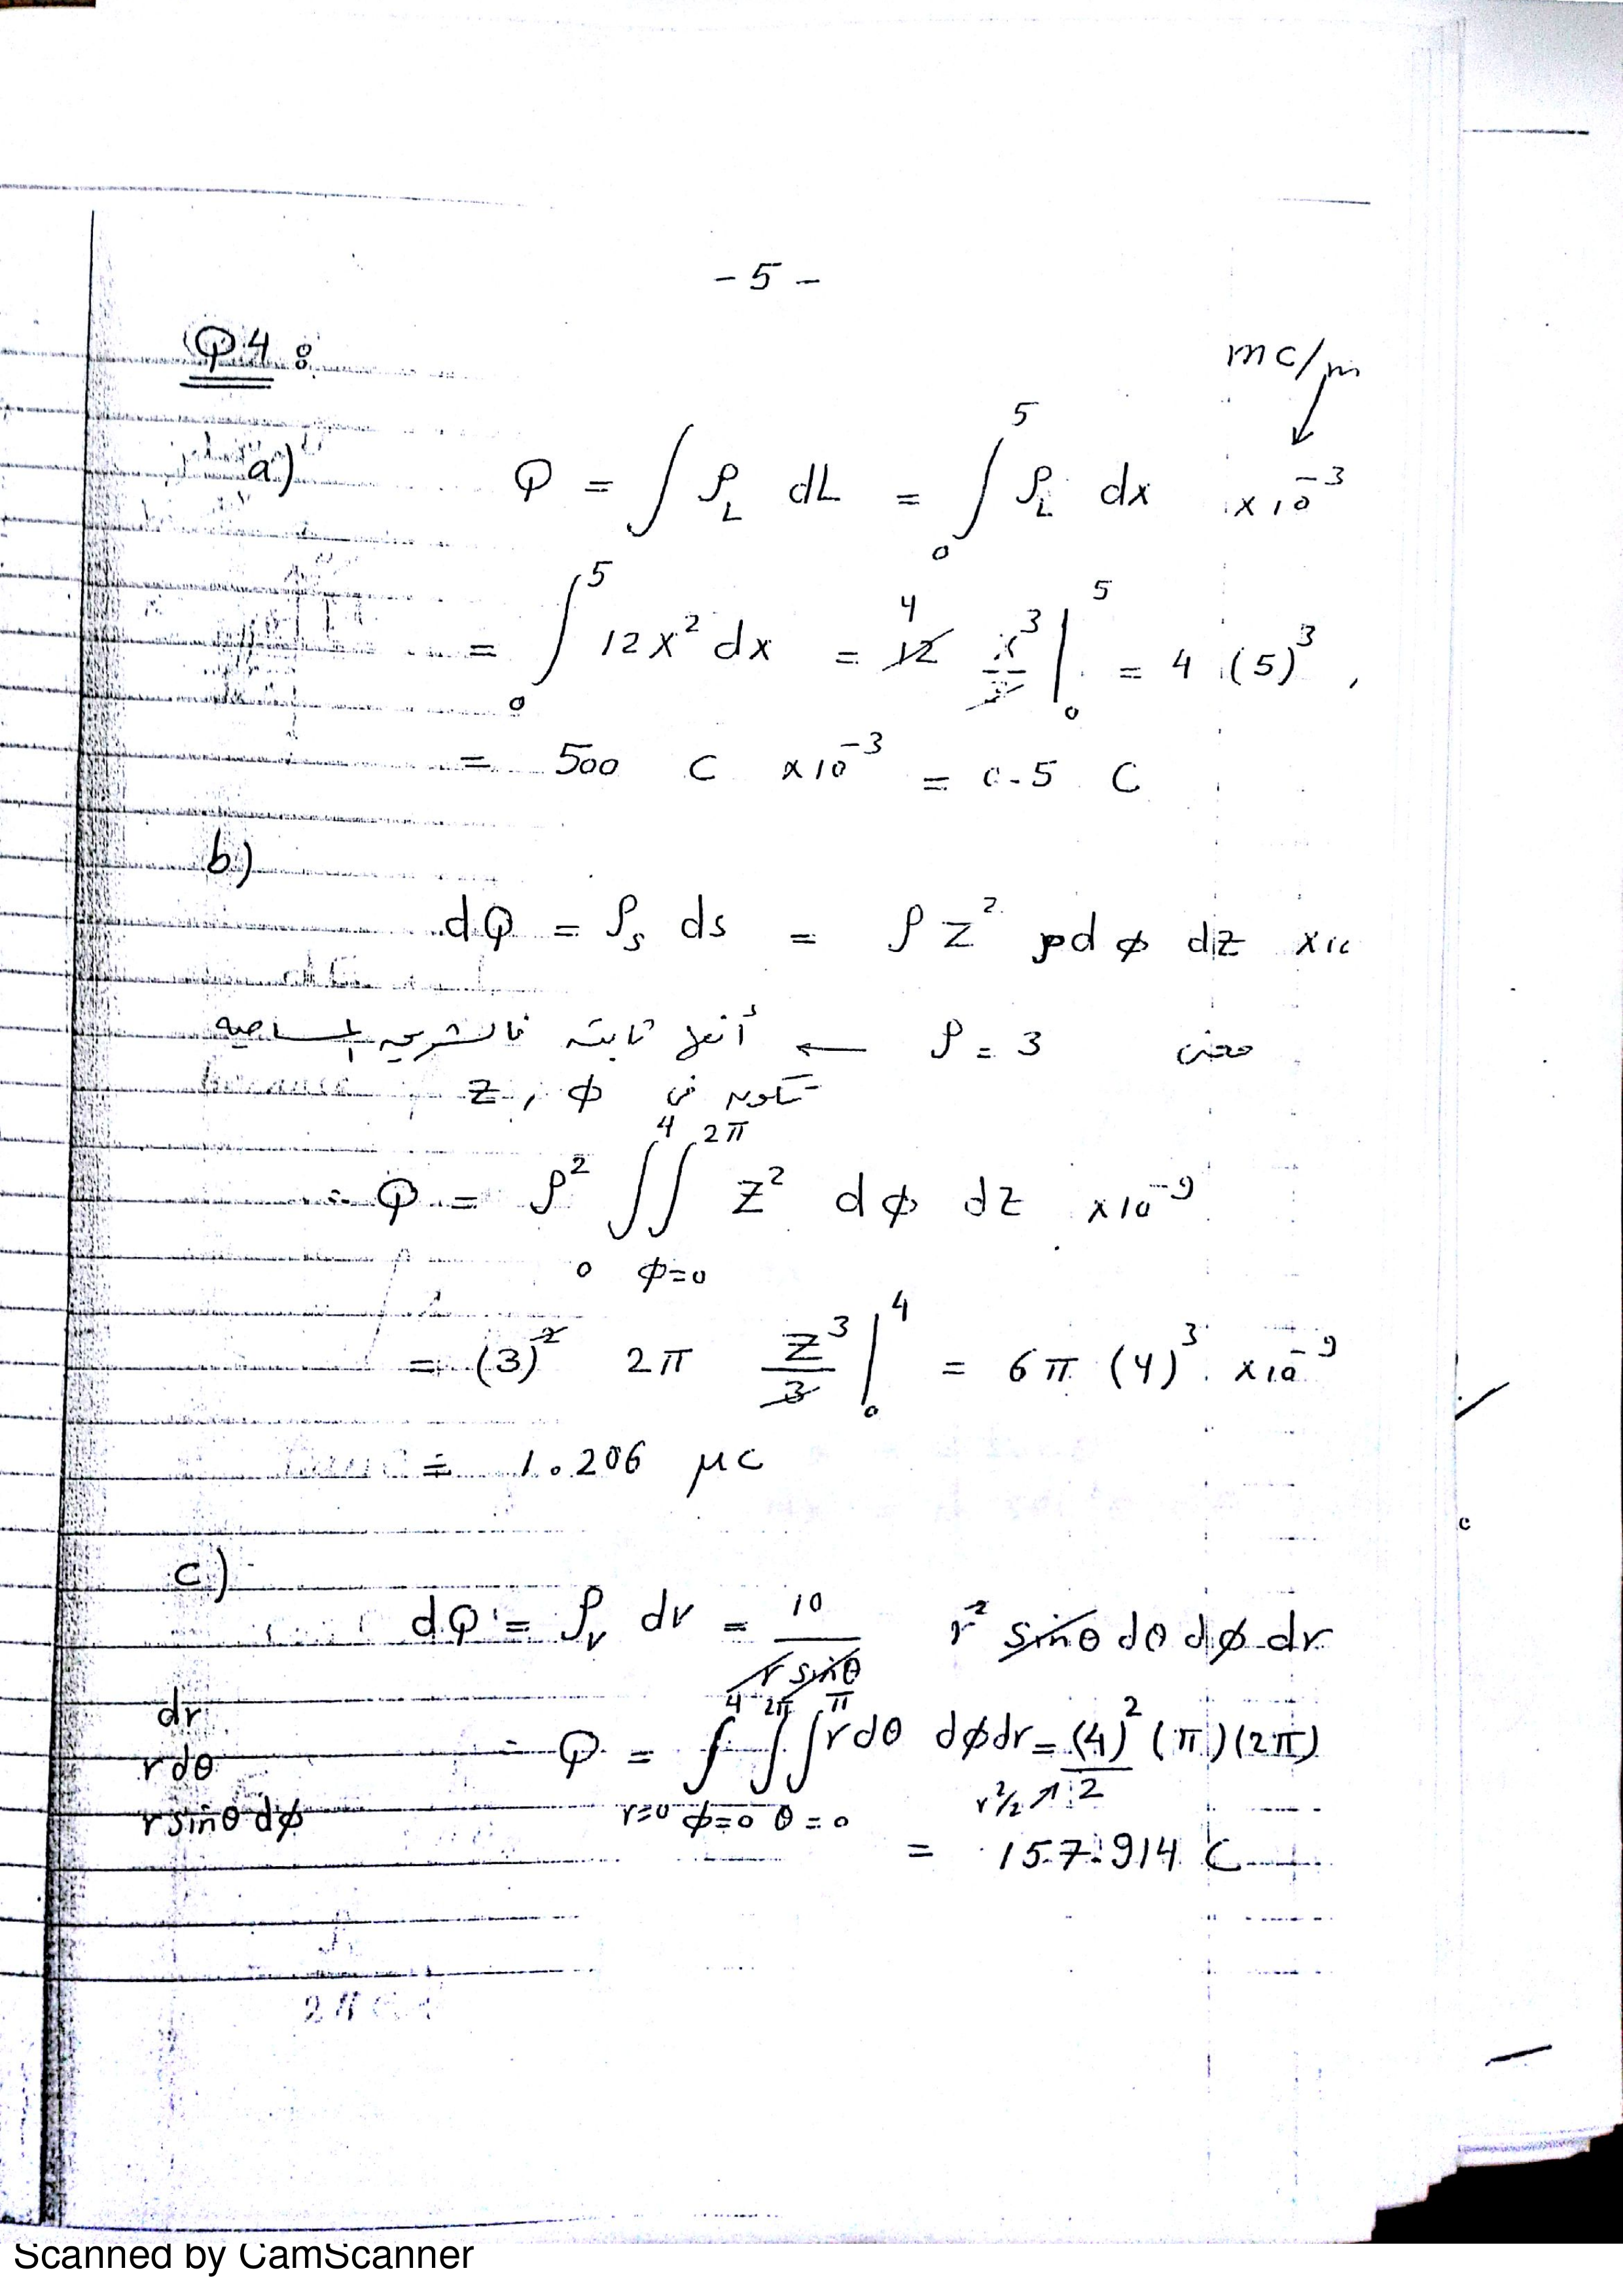 - 5 -
Q4 :
mc/m
a) Q = ∫ ρ_L dL = ∫₀⁵ ρ_L dx ×10⁻³
= ∫₀⁵ 12x² dx = 12 x³/3 |₀⁵ = 4 (5)³
4
= 500 C ×10⁻³ = 0.5 C
b)
dQ = ρ_s ds = ρ z² ρ dφ dz ×10
ρ = 3 ← أنها ثابتة فالشريحة المساحية
تكون في z , φ
∴ Q = ρ² ∫₀⁴ ∫_{φ=0}^{2π} z² dφ dz ×10⁻⁹
= (3)² 2π z³/3 |₀⁴ = 6π (4)³ ×10⁻⁹
= 1.206 μC
c)
dQ = ρ_v dv = 10/(r sinθ) r² sinθ dθ dφ dr
dr
rdθ
r sinθ dφ
∴ Q = ∫_{r=0}^{4} ∫_{φ=0}^{2π} ∫_{θ=0}^{π} r dθ dφ dr = (4)²/2 (π)(2π)
r²/2 ↗
= 157.914 C
Scanned by CamScanner